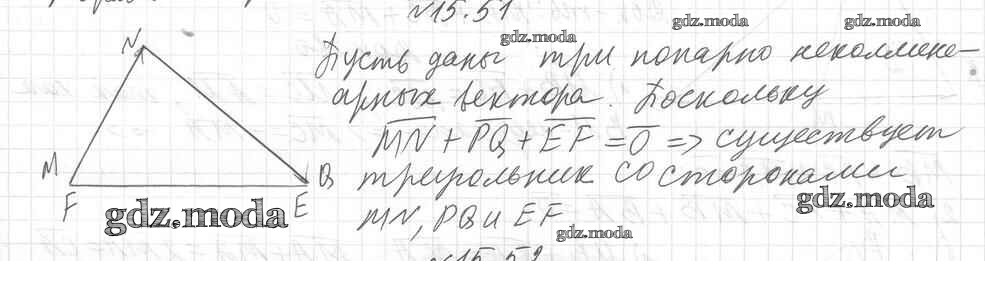 N15.51
Пусть даны три попарно неколлине-
арных вектора. Поскольку
MN + PQ + EF = 0 => существует
треугольник со сторонами
MN, PQ и EF
N
M
F
Q
E
gdz.moda
gdz.moda
gdz.moda
gdz.moda
gdz.moda
gdz.moda